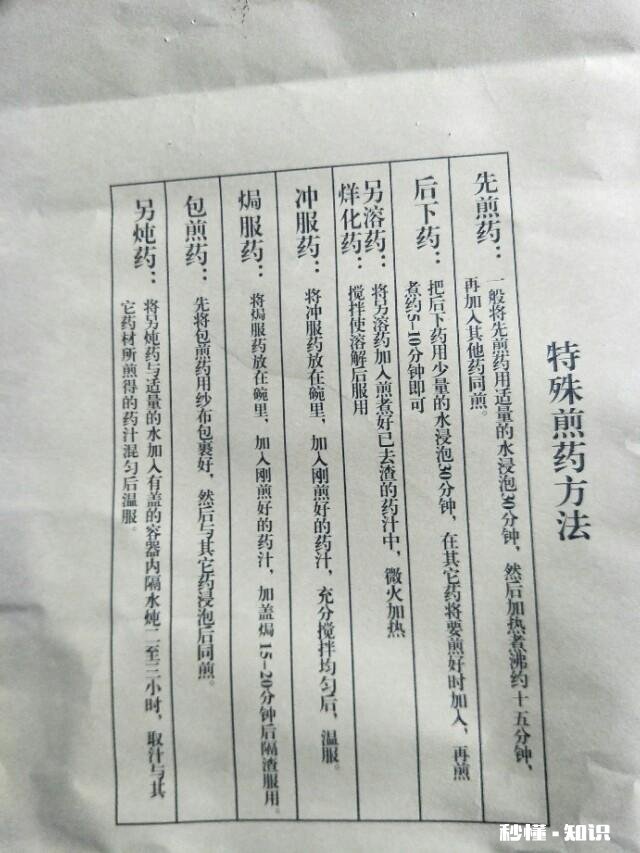 特殊煎药方法
先煎药：
一般将先煎药用适量的水浸泡30分钟，然后加热煮沸约十五分钟，
再加入其他药同煎。
后下药：
把后下药用少量的水浸泡30分钟，在其它药将要煎好时加入，再煎
煮药5-10分钟即可
另溶药：
烊化药：
将另溶药加入煎煮好已去渣的药汁中，微火加热
搅拌使溶解后服用
冲服药：
将冲服药放在碗里，加入刚煎好的药汁，充分搅拌均匀后，温服。
焗服药：
将焗服药放在碗里，加入刚煎好的药汁，加盖焗15-20分钟后隔渣服用。
包煎药：
先将包煎药用纱布包裹好，然后与其它药浸泡后同煎。
另炖药：
将另炖药与适量的水加入有盖的容器内隔水炖二至三小时，取汁与其
它药材所煎得的药汁混匀后温服。
秒懂·知识